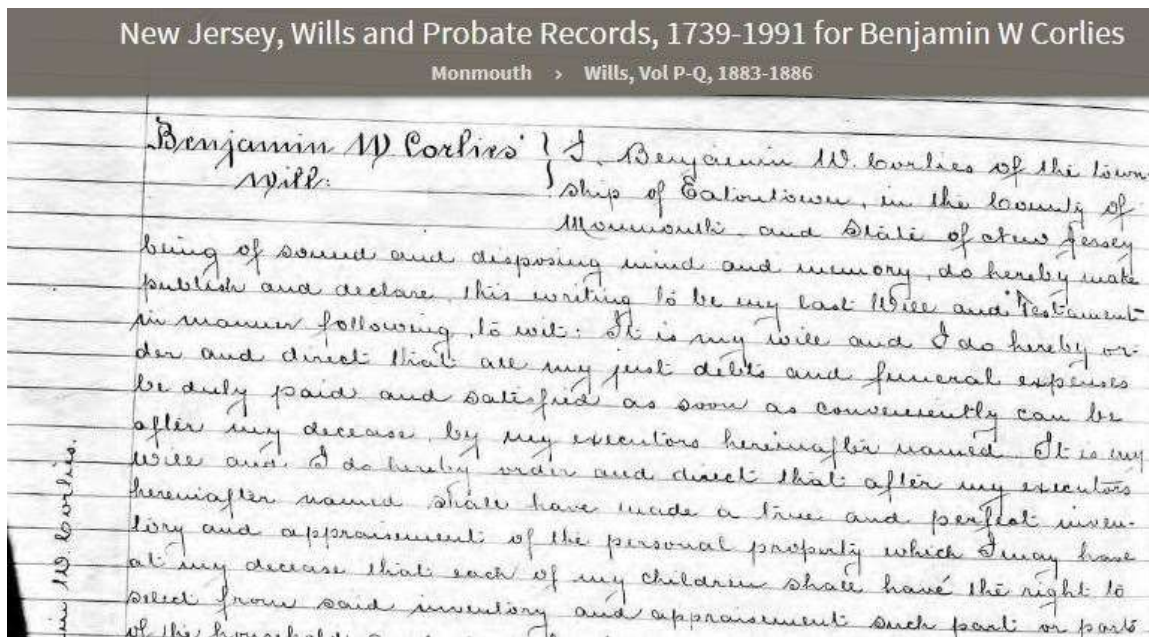 New Jersey, Wills and Probate Records, 1739-1991 for Benjamin W Corlies
Monmouth > Wills, Vol P-Q, 1883-1886
Benjamin W. Corlies' } I, Benjamin W. Corlies of the town-
Will. ship of Eatontown, in the County of
Monmouth and State of New Jersey
being of sound and disposing mind and memory, do hereby make
publish and declare, this writing to be my last Will and Testament
in manner following, to wit: It is my will and I do hereby or-
der and direct that all my just debts and funeral expenses
be duly paid and satisfied as soon as conveniently can be
after my decease, by my executors hereinafter named. It is my
will and I do hereby order and direct that after my executors
hereinafter named shall have made a true and perfect inven-
tory and appraisement of the personal property which I may have
at my decease that each of my children shall have the right to
select from said inventory and appraisement such part or parts
of the household
W. Corlies.